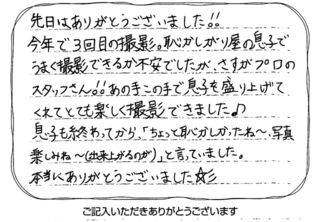 先日はありがとうございました!!
今年で3回目の撮影。恥かしがり屋の息子で
うまく撮影できるか不安でしたが、さすがプロの
スタッフさん!!あの手この手で息子を盛り上げて
くれてとても楽しく撮影できました♪
息子も終わってから、「ちょっと恥かしかったね〜、写真
楽しみね〜(出来上がるのが)」と言っていました。
本当にありがとうございました☆彡
ご記入いただきありがとうございます